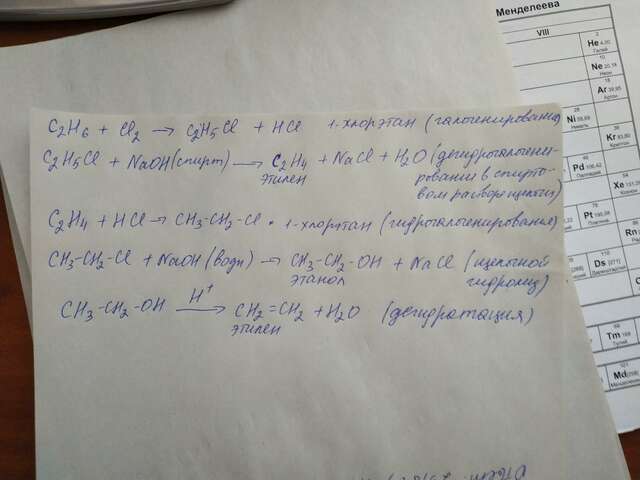 Менделеева
VIII
2
He 4,00
Гелий
10
Ne 20,18
Неон
18
Ar 39,95
Аргон
28
Ni 58,69
Никель
36
Kr 83,80
Криптон
46
Pd 106,42
Палладий
54
Xe
Ксенон
78
Pt
Платина
Rn
110
Ds [271]
Дармштадтий
69
Tm 168
Тулий
101
Md
C2H6 + Cl2 → C2H5Cl + HCl 1-хлорэтан (галогенирование)
C2H5Cl + NaOH (спирт) → C2H4 + NaCl + H2O (дегидрогалогени-
этилен рование в спирто-
вом растворе щелочи)
C2H4 + HCl → CH3-CH2-Cl 1-хлорэтан (гидрогалогенирование)
CH3-CH2-Cl + NaOH (водн) → CH3-CH2-OH + NaCl (щелочной
этанол гидролиз)
CH3-CH2-OH H+ → CH2=CH2 + H2O (дегидратация)
этилен